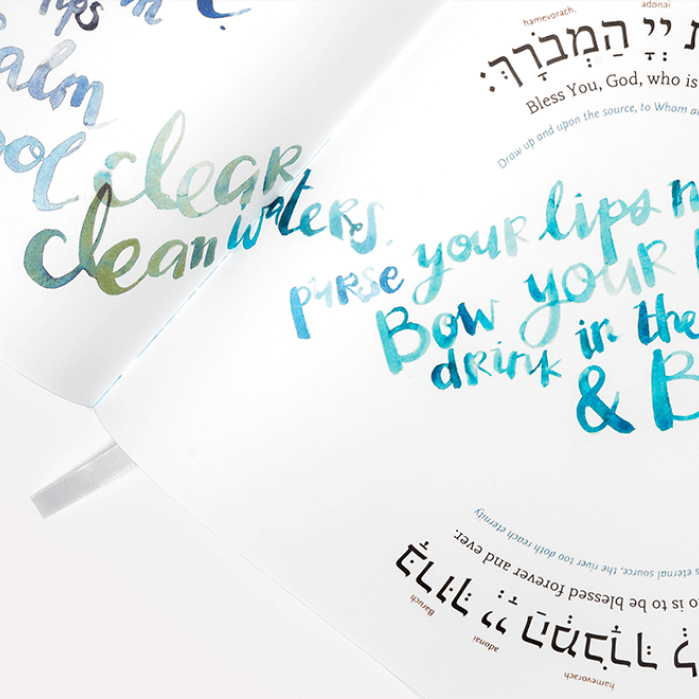 lips in
alm
ool clear
clean waters,
hamevorach. adonai
יְיָ הַמְבֹרָךְ:
Bless You, God, who is
Draw up and upon the source, to Whom
purse your lips
Bow your
drink in the
& B
Baruch adonai hamevorach
בָּרוּךְ יְיָ הַמְבֹרָךְ
is to be blessed forever and ever.
eternal source, the river too doth reach eternity